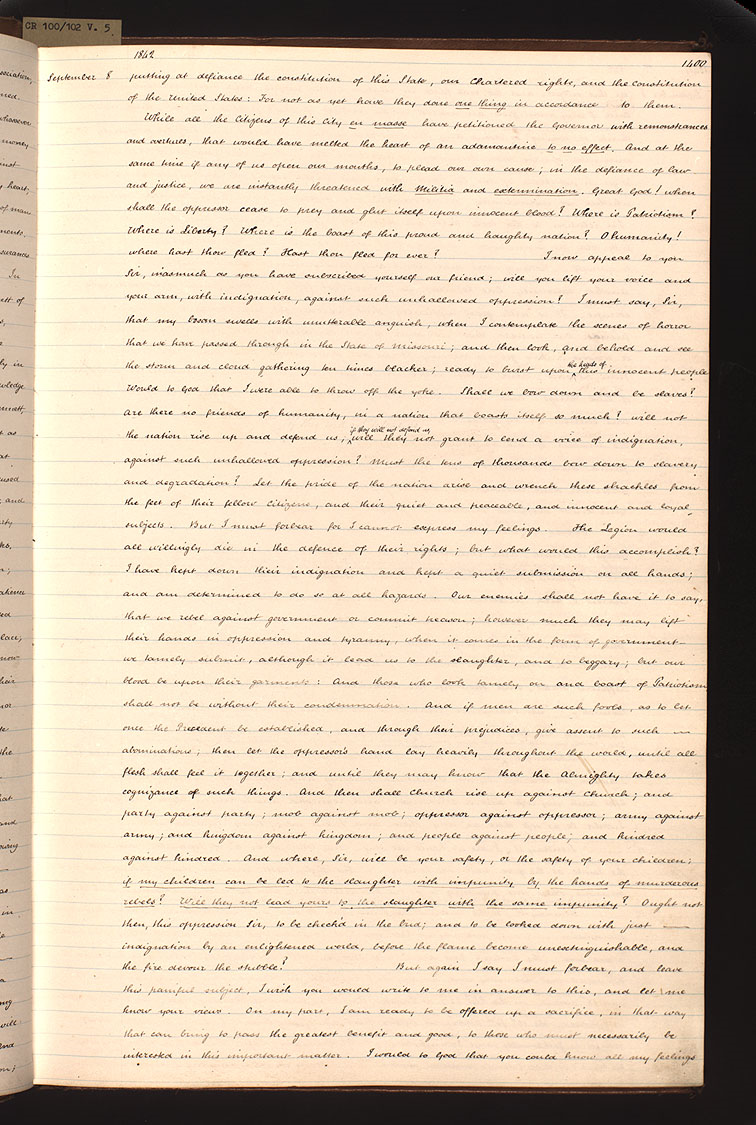 CR 100/102 V. 5.
1842
1400
September 8 putting at defiance the constitution of this State, our Chartered rights, and the Constitution
of the United States: For not as yet have they done one thing in accordance to them.
While all the Citizens of this City en masse have petitioned the Governor with remonstrances
and overtures, that would have melted the heart of an adamantine to no effect. And at the
same time if any of us open our mouths, to plead our own cause; in the defiance of law
and justice, we are instantly threatened with Militia and extermination. Great God! when
shall the oppressor cease to prey and glut itself upon innocent blood? Where is Patriotism?
Where is Liberty? Where is the boast of this proud and haughty nation? O humanity!
where hast thou fled? Hast thou fled for ever? I now appeal to you
Sir, inasmuch as you have subscribed yourself our friend; will you lift your voice and
your arm, with indignation, against such unhallowed oppression? I must say, Sir,
that my bosom swells with unutterable anguish, when I contemplate the scenes of horror
that we have passed through in the State of Missouri; and then look, and behold and see
the storm and cloud gathering ten times blacker; ready to burst upon the heads of this innocent people
Would to God that I were able to throw off the yoke. Shall we bow down and be slaves?
Are there no friends of humanity, in a nation that boasts itself so much? will not
the nation rise up and defend us; if they will not defend us, will they not grant to lend a voice of indignation,
against such unhallowed oppression? Must the tens of thousands bow down to slavery
and degradation? Let the pride of the nation arise and wrench these shackles from
the feet of their fellow Citizens, and their quiet and peaceable, and innocent and loyal
subjects. But I must forbear for I cannot express my feelings. The Legion would
all willingly die in the defence of their rights; but what would this accomplish?
I have kept down their indignation and kept a quiet submission on all hands;
and am determined to do so at all hazards. Our enemies shall not have it to say,
that we rebel against government or commit treason; however much they may lift
their hands in oppression and tyranny, when it comes in the form of government
we tamely submit, although it lead us to the slaughter, and to beggary; but our
blood be upon their garments: And those who look tamely on and boast of Patriotism
shall not be without their condemnation. And if men are such fools, as to let
once the Precedent be established, and through their prejudices, give assent to such
abominations; then let the oppressor's hand lay heavily throughout the world, until all
flesh shall feel it together; and until they may know that the Almighty takes
cognizance of such things. And then shall Church rise up against Church; and
party against party; mob against mob; oppressor against oppressor; army against
army; and kingdom against kingdom; and people against people; and kindred
against kindred. And where, Sir, will be your safety, or the safety of your children;
if my children can be led to the slaughter with impunity by the hands of murderous
rebels? Will they not lead yours to the slaughter with the same impunity? Ought not
then, this oppression Sir, to be check'd in the bud; and to be looked down with just
indignation by an enlightened world, before the flame become unextinguishable, and
the fire devour the stubble? But again I say I must forbear, and leave
this painful subject, I wish you would write to me in answer to this, and let me
know your views. On my part, I am ready to be offered up a sacrifice, in that way
that can bring to pass the greatest benefit and good, to those who must necessarily be
interested in this important matter. I would to God that you could know all my feelings